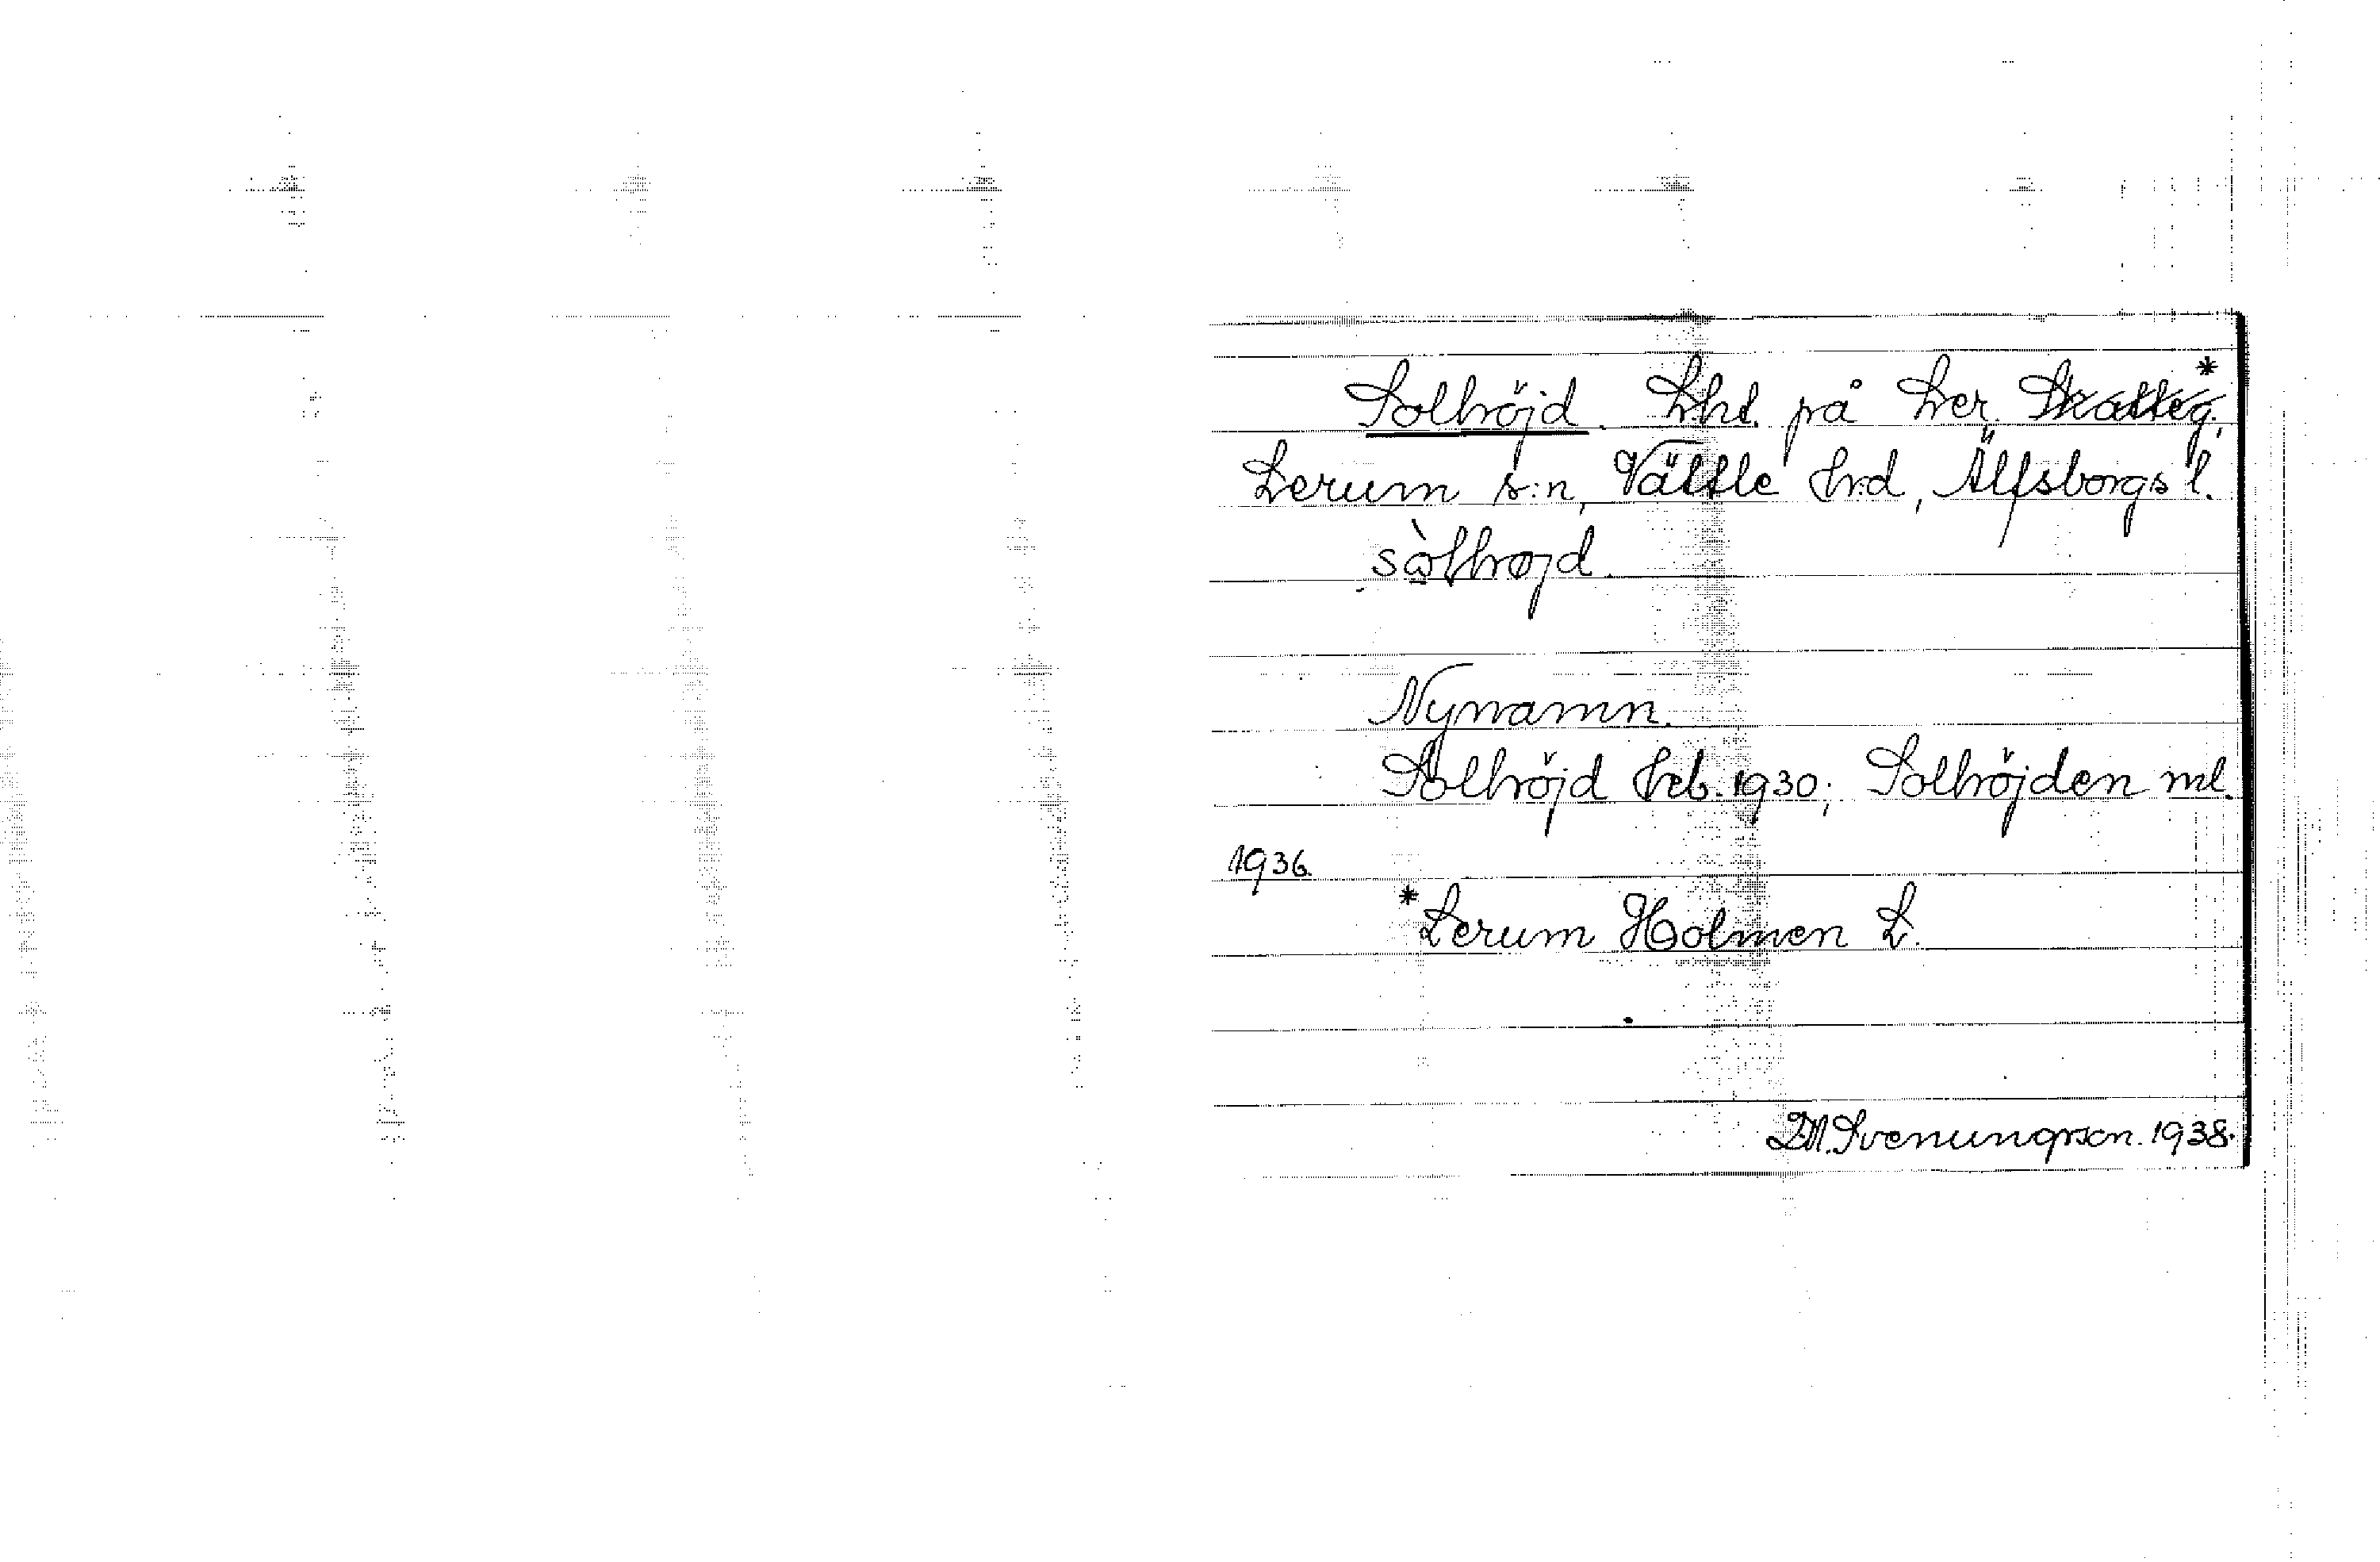 Solhöjd. Lht. på Ler. Skatteg.*
Lerum s:n, Vättle hd, Älfsborgs l.
sòlhøjd.
Nynamn.
Solhöjd hfl. 1930; Solhöjden ml.
1936.
*Lerum Holmen L.
D.M. Svenungsson. 1938.